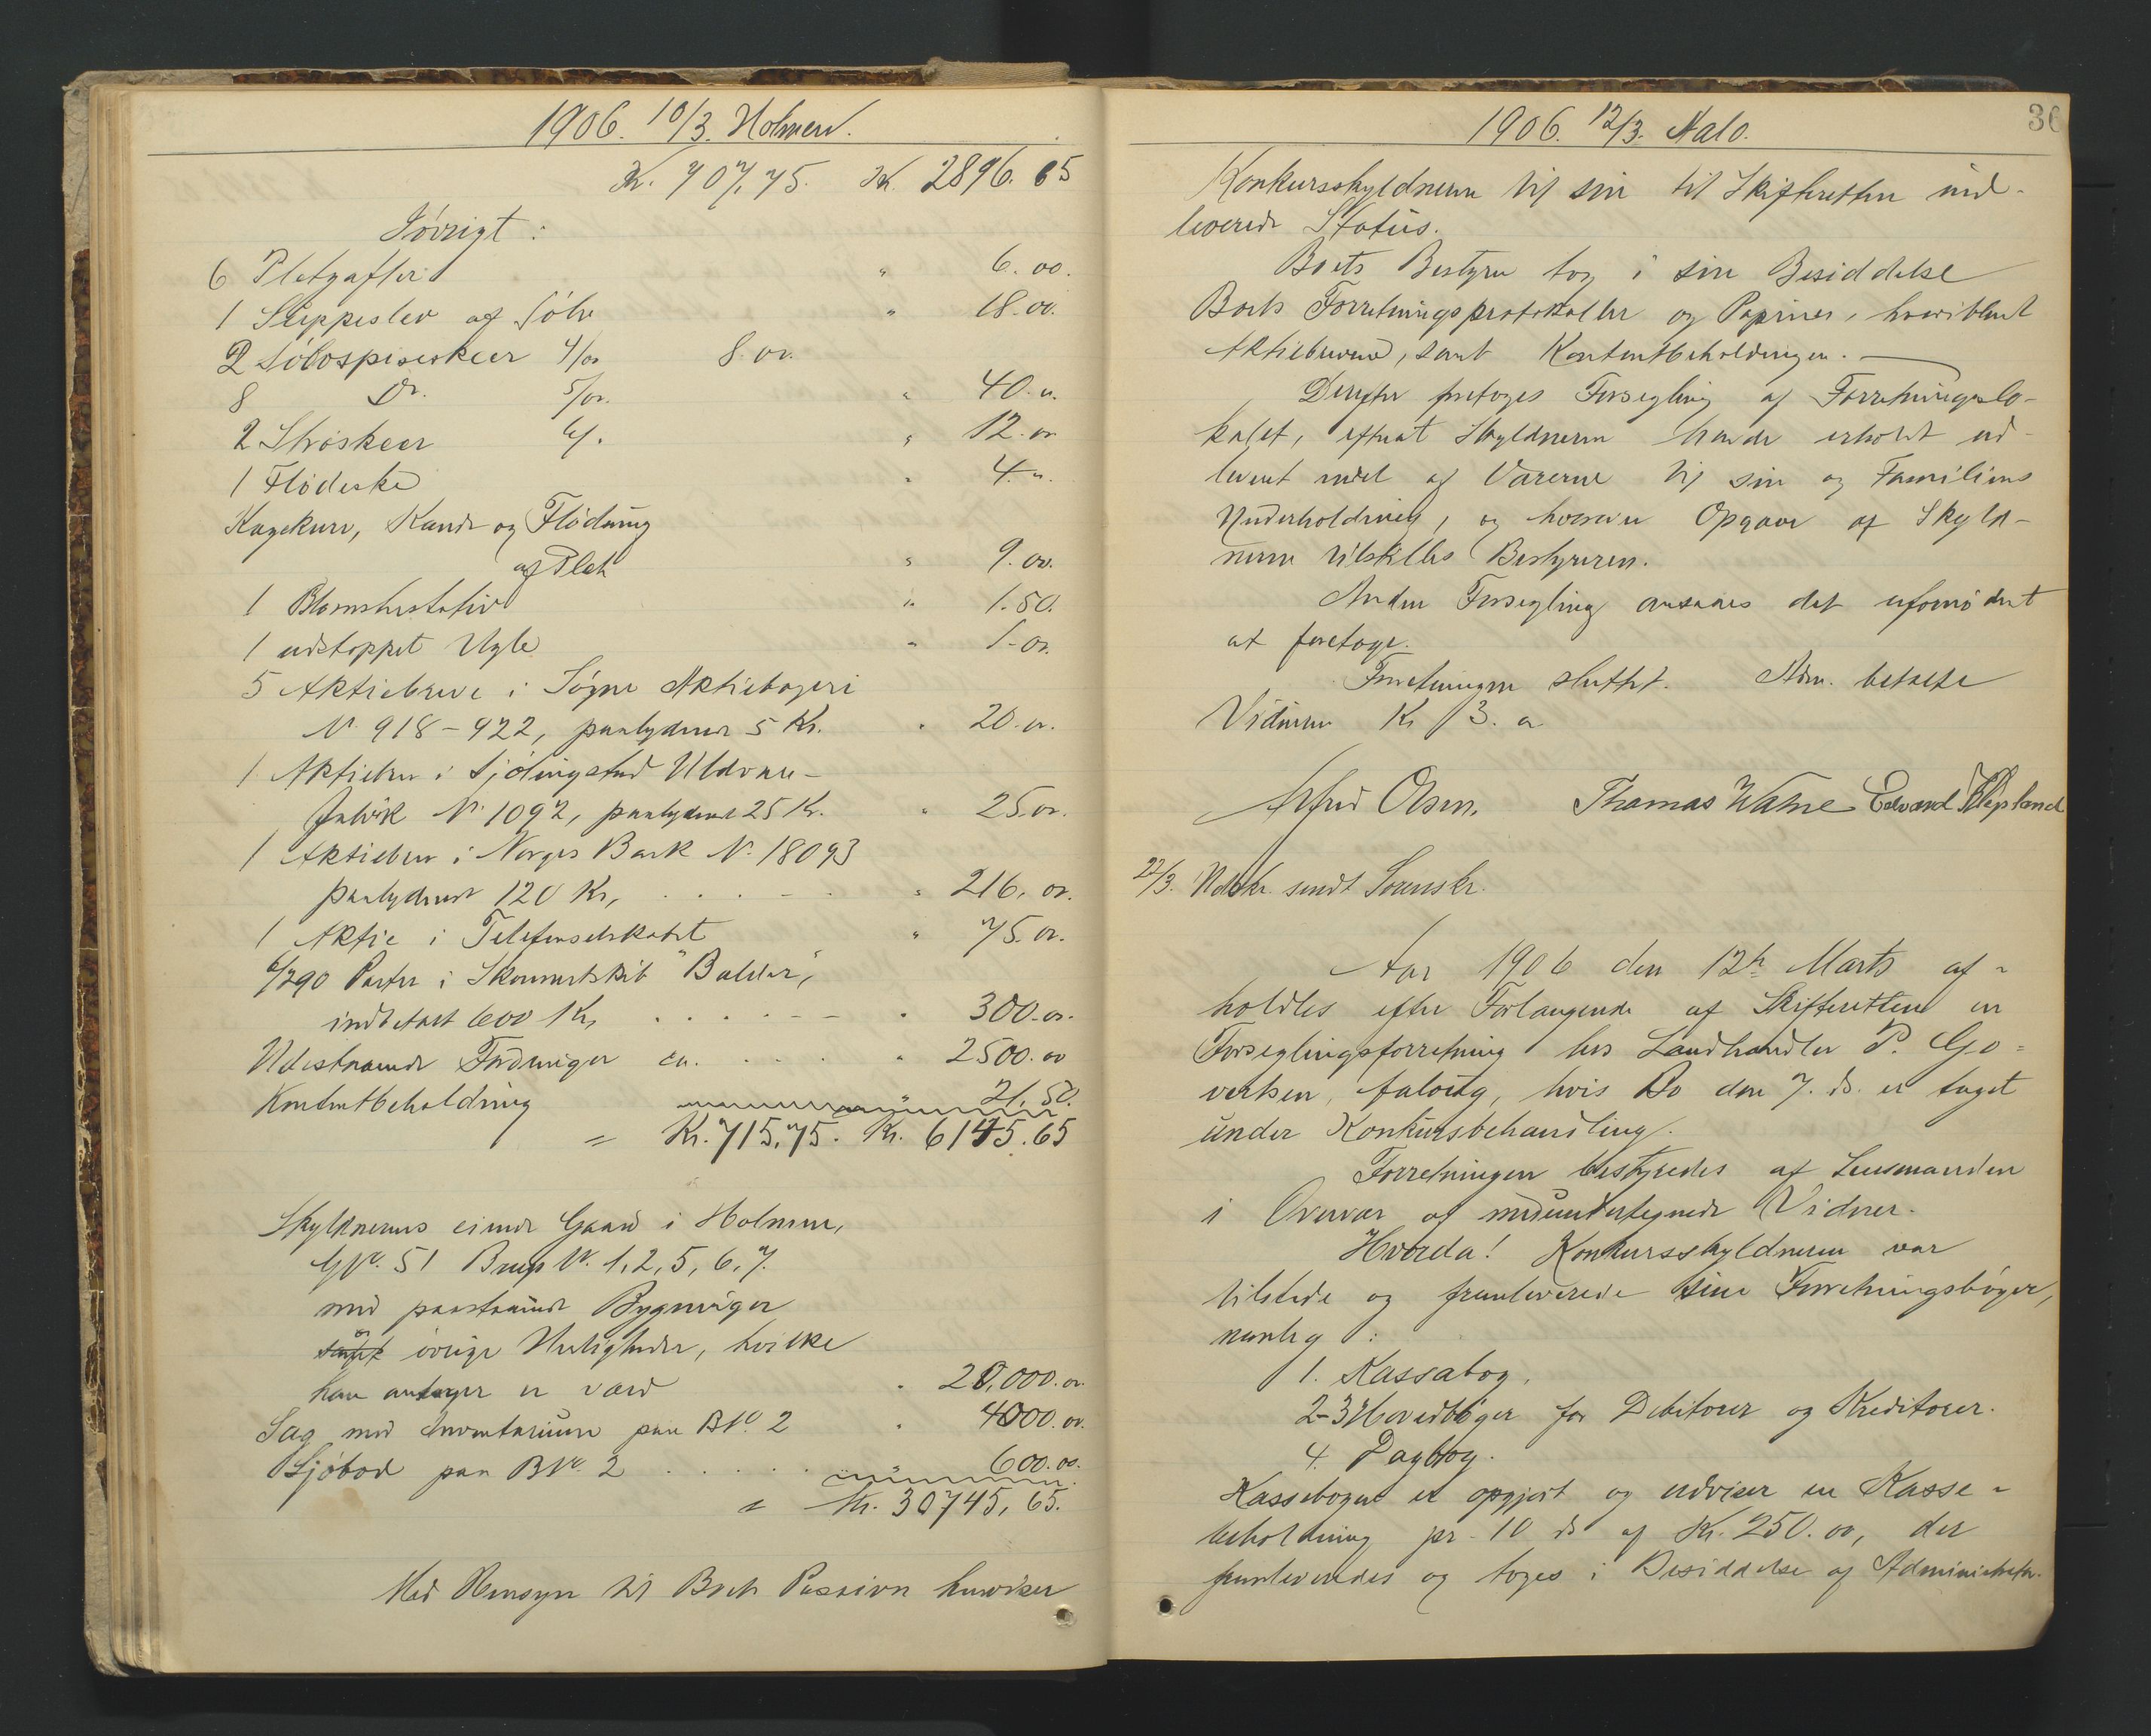 1906. 10/3. Holmen.
Kr. 707,75. Kr. 2896.65
Iøvrigt:
6 Pletgafler " 6.00.
1 Suppeslev af Sølv " 18.00.
2 Sølvspiseskeer 4/00 8.00.
8 Do. 5/00. " 40.00
2 Strøskeer 6/. " 12.00
1 Flødeske " 4.00
Kagekurv, Kande og Flødemug
af Plet " 9.00.
1 Blomsterstativ " 1.50.
1 udstoppet Ugle " 1.00.
5 Aktiebreve i Søgne Aktiebageri
No 918-922, paalydende 5 Kr. " 20.00.
1 Aktiebrev i Sjølingstad Uldvare-
fabrik No 1092, paalydende 25 Kr. " 25.00.
1 Aktiebrev i Norges Bank No. 18093
paalydende 120 Kr, " 216.00.
1 Aktie i Telefonselskabet " 75.00.
6/290 Parter i Skonnertskib "Balder",
indbetalt 600 Kr, " 300.00.
Udestaaende Fordringer ca. " 2500.00
Kontantbeholdning " 21.50.
= Kr. 715,75. Kr. 6145.65
Skyldnerens eiende Gaard i Holmen,
GNo. 51 Brugs No. 1, 2, 5, 6, 7.
med paastaaende Bygninger
samt øvrige Herligheder, hvilke
han antager er værd " 20,000.00.
Sag med Inventarium paa BNo. 2 " 4000.00.
Sjøbod paa BNo. 2 " 600.00.
= Kr. 30745,65.
Med Hensyn til Boets Passiva henviser
1906. 12/3. Valo.
36
Konkursskyldneren til sin til Skifteretten ind-
leverede Status.
Boets Bestyrer tog i sin Besiddelse
Boets Forretningsprotokoller og Papirer, hvoriblandt
Aktiebrevene, samt Kontantbeholdningen.
Derefter foretoges Forsegling af Forretningslo-
kalet, efterat Skyldneren havde erholdt ud-
leveret endel af Varerne til sin og Familiens
Underholdning, og hvorover Opgave af Skyld-
neren tilstilles Bestyreren.
Anden Forsegling ansaaes det ufornødent
at foretage.
Forretningen sluttet. Adm. betalte
Vidnerne Kr 3.00
Alfred Olsen. Thomas Watne Edvard Klepland
22/3. Udskr. sendt Sorenskr.
Aar 1906 den 12te Marts af-
holdtes efter Forlangende af Skifteretten en
Forseglingsforretning hos Landhandler P. Go-
vertsen, hvis Bo den 7. ds. er taget
under Konkursbehandling.
Forretningen bestyredes af Lensmanden
i Overvær af medundertegnede Vidner.
Hvorda! Konkursskyldneren var
tilstede og fremleverede sine Forretningsbøger,
nemlig:
1. Kassabog.
2-3 Hovedbøger for Debitorer og Kreditorer.
4. Dagbog.
Kassebogen er opgjort og udviser en Kasse-
beholdning pr. 10 ds af Kr. 250.00, der
fremleveredes og toges i Besiddelse af Administrator.